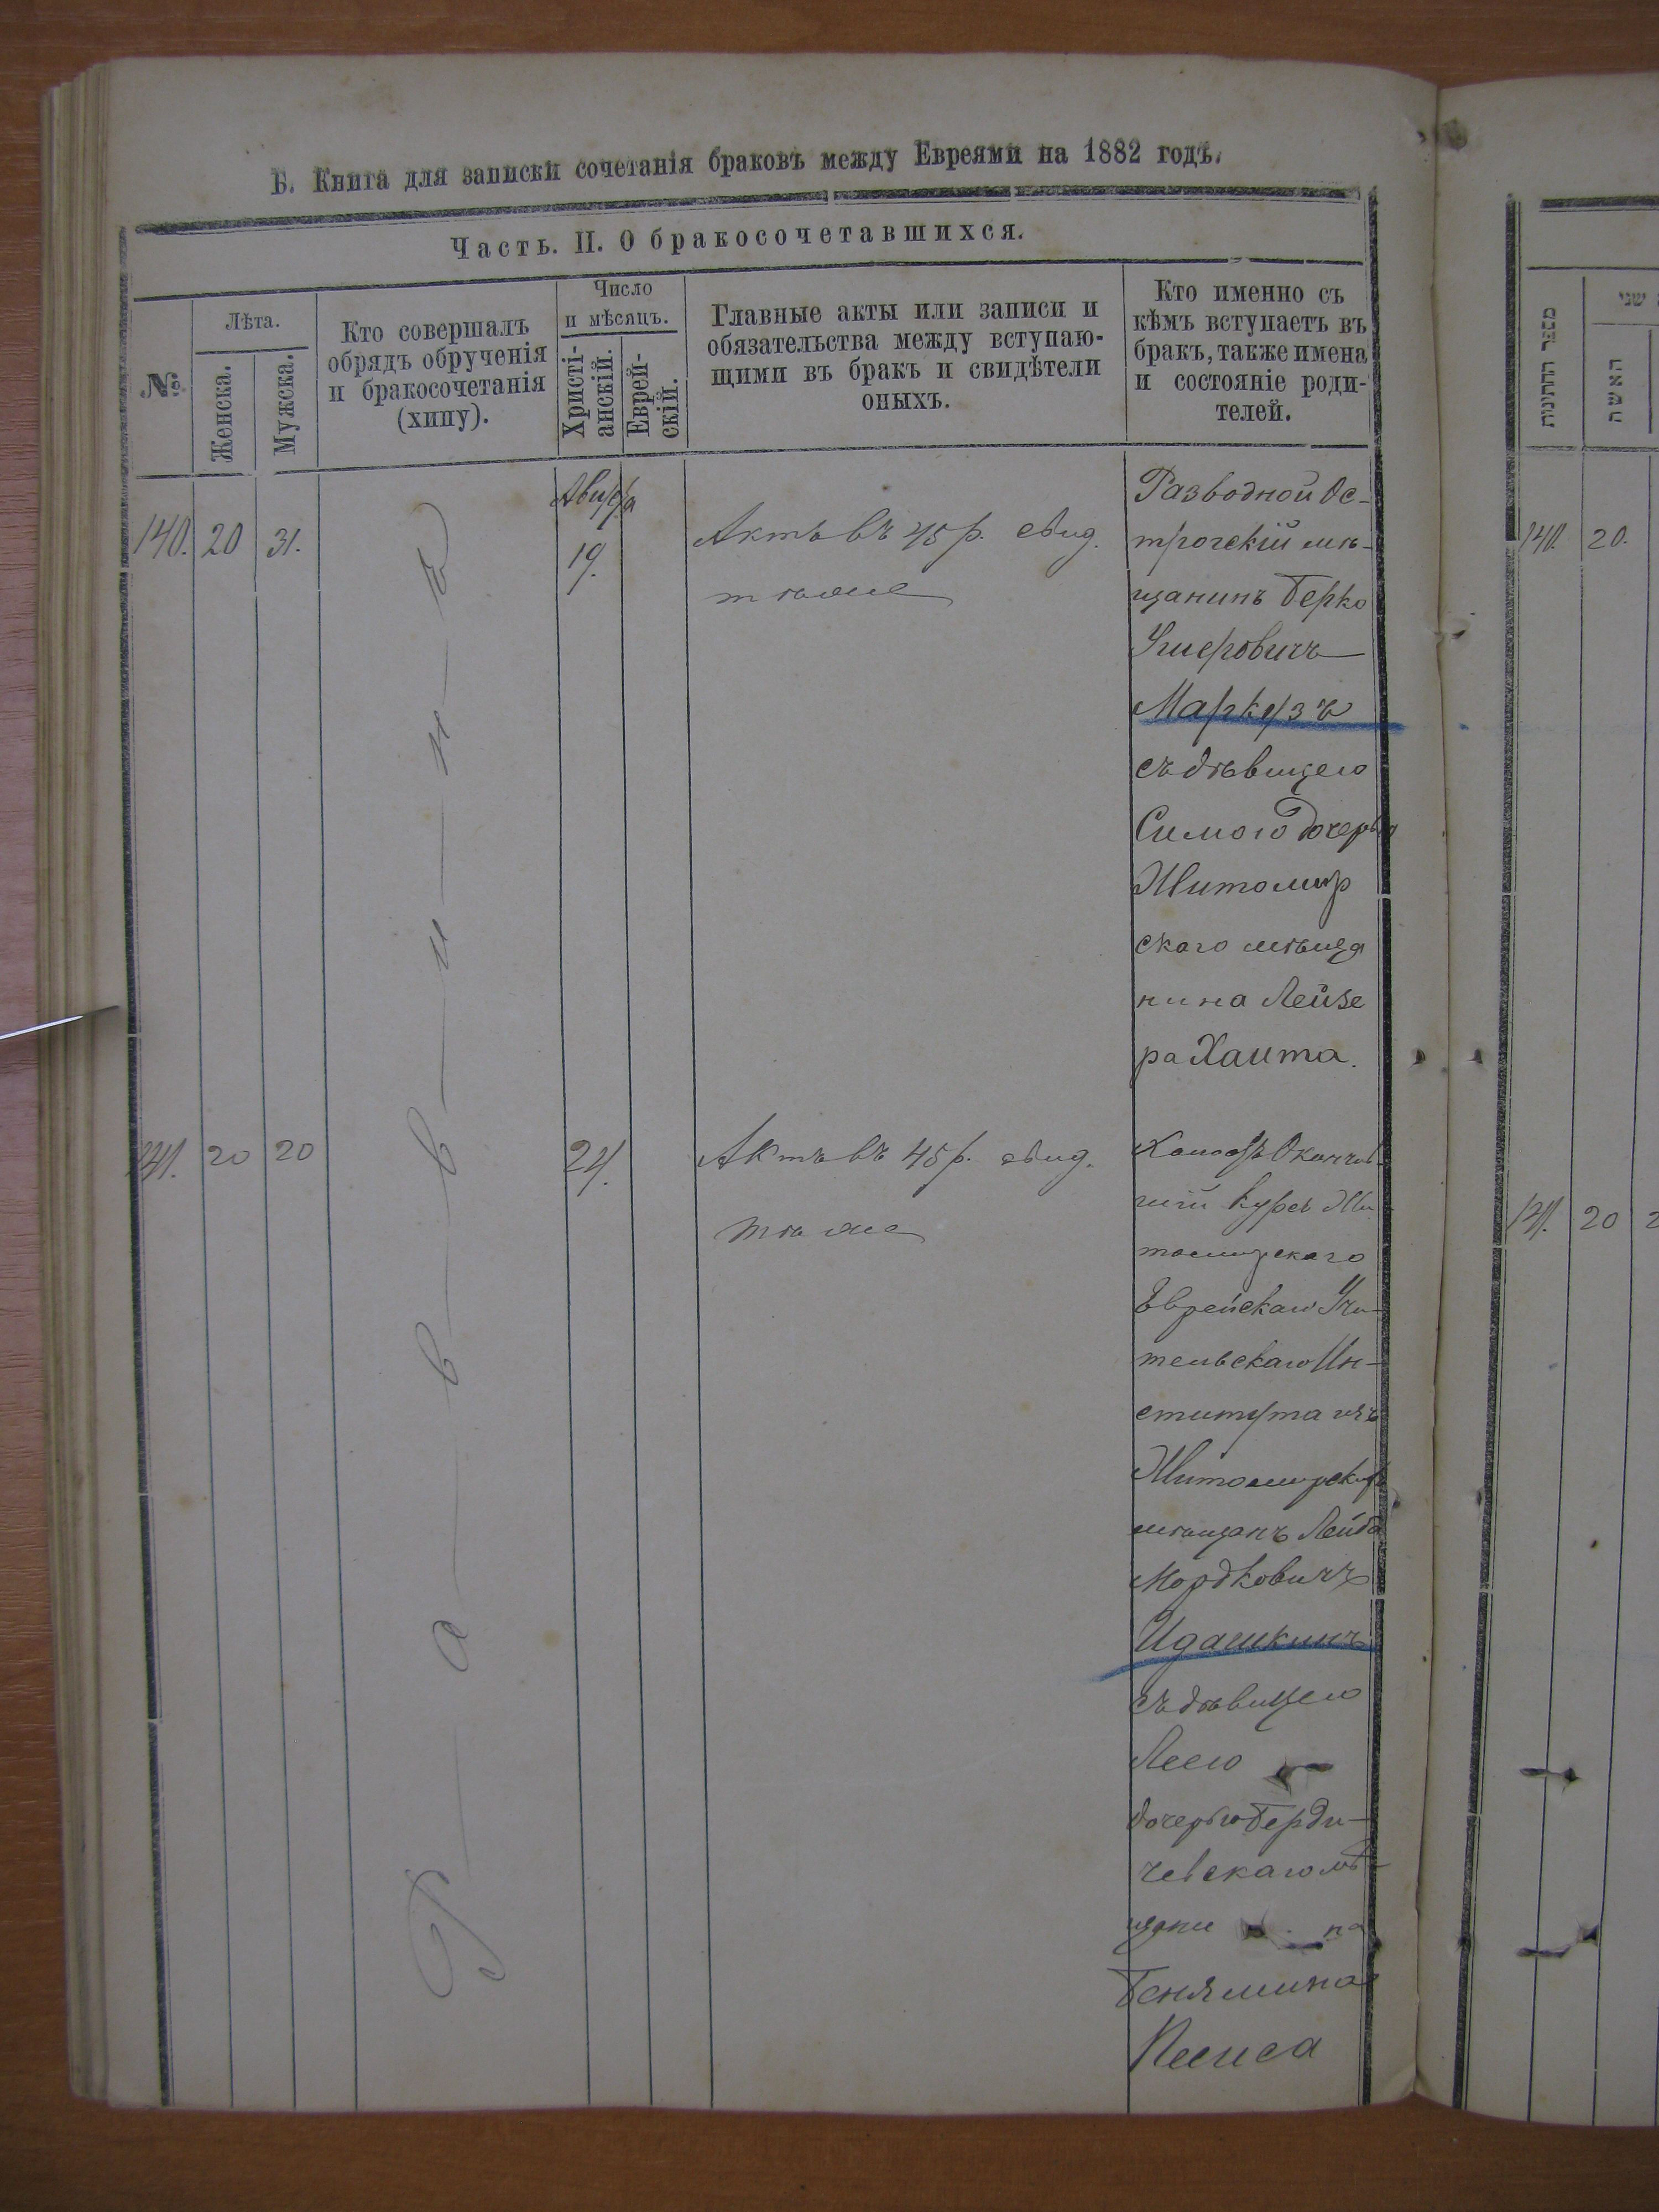 Б. Книга для записки сочетанія браковъ между Евреями на 1882 годъ.
Часть. II. О бракосочетавшихся.
№
Лѣта.
Женска.
Мужска.
Кто совершалъ
обрядъ обрученія
и бракосочетанія
(хипу).
Число
и мѣсяцъ.
Христі-
анскій.
Еврей-
скій.
Главные акты или записи и
обязательства между вступаю-
щими въ бракъ и свидѣтели
оныхъ.
Кто именно съ
кѣмъ вступаетъ въ
бракъ, также имена
и состояніе роди-
телей.
Раввинъ
140. 20 31.
Августа
19.
Актъ въ 45 р. свид.
тѣже
Разводной Ос-
трогскій мѣ-
щанинъ Берко
Ушеровичъ
Маркузъ
съ дѣвицею
Симою дочерью
Житомир
скаго мѣща
нина Лейзе
ра Хаита.
141. 20 20
24.
Актъ въ 45 р. свид.
тѣже
Окончив
шій курсъ Жи
томирскаго
Еврейскаго Учи-
тельскаго Ин-
ститута изъ
Житомирскихъ
мѣщанъ Лейба
Мордковичъ
Идашкинъ
съ дѣвицею
Леею
дочерью Берди-
чевскаго мѣ-
щани на
Бенямина
Песиса
מספר החתונות
שני
האשה
140. 20.
141. 20 2